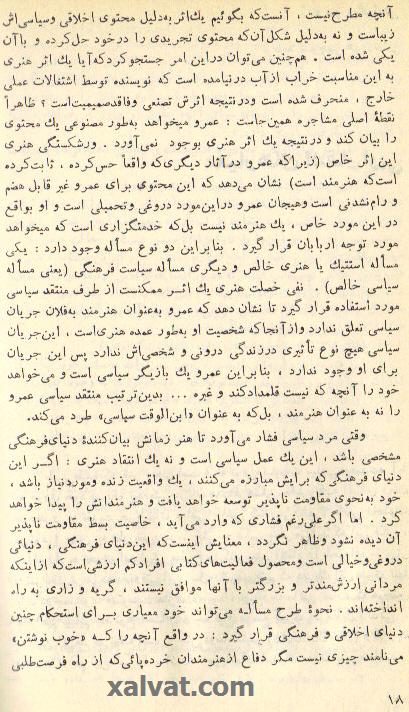 آنچه مطرح نیست ، آنست‌که بگوئیم یك‌اثر به‌دلیل محتوی اخلاقی وسیاسی‌اش
زیباست و نه به‌دلیل شکل‌آن‌که محتوی تجریدی را درخود حل‌کرده و باآن
یکی شده است . هم‌چنین می‌توان دراین امر جستجوکردکه‌آیا یك اثر هنری
به این مناسبت خراب ازآب درنیامده است که نویسنده توسط اشتغالات عملی
خارج ، منحرف شده است ودرنتیجه اثرش تصنعی وفاقدصمیمیت‌است ؟ ظاهراً
نقطهٔ اصلی مشاجره همین‌جاست : عمرو میخواهد به‌طور مصنوعی یك محتوی
را بیان کند ودرنتیجه یك اثر هنری بوجود نمی‌آورد . ورشکستگی هنری
این اثر خاص (زیراکه عمرو درآثار دیگری‌که واقعاً حس‌کرده ، ثابت‌کرده
است‌که هنرمند است) نشان می‌دهد که این محتوی برای عمرو غیر قابل هضم
و رام‌نشدنی است‌وهیجان عمرو دراین‌مورد دروغی وتحمیلی است و او بواقع
در این مورد خاص ، یك هنرمند نیست بل‌که خدمتگزاری است که میخواهد
مورد توجه اربابان قرار گیرد . بنابراین دو نوع مسأله وجود دارد : یکی
مسأله استتیك یا هنری خالص و دیگری مسأله سیاست فرهنگی (یعنی مسأله
سیاسی خالص) . نفی خصلت هنری یك اثـر ممکنست از طرف منتقد سیاسی
مورد استفاده قرار گیرد تا نشان دهد که عمرو به‌عنوان هنرمند به‌فلان جریان
سیاسی تعلق ندارد وازآنجاکه شخصیت او به‌طور عمده هنری‌است ، این‌جریان
سیاسی هیچ نوع تأثیری درزندگی درونی و شخصی‌اش ندارد پس این جریان
برای او وجود ندارد ، بنابراین عمرو یك بازیگر سیاسی است و می‌خواهد
خود را آنچه که نیست قلمدادکند و غیره ... بدین‌ترتیب منتقد سیاسی عمرو
را نه به عنوان هنرمند ، بل‌که به عنوان «ابن‌الوقت سیاسی» طرد می‌کند.
وقتی مرد سیاسی فشار می‌آورد تا هنر زمانش بیان‌کنندهٔ دنیای‌فرهنگی
مشخصی باشد ، این یك عمل سیاسی است و نه یك انتقاد هنری : اگـر این
دنیای فرهنگی‌که برایش مبارزه می‌کنند ، یك واقعیت زنده وموردنیاز باشد ،
خود به‌نحوی مقاومت ناپذیر توسعه خواهد یافت و هنرمندانش را پیدا خواهد
کرد . اما اگرعلی‌رغم فشاری که وارد می‌آید ، خاصیت بسط مقاومت ناپذیر
آن دیده نشود وظاهر نگردد ، معنایش اینست‌که این‌دنیای فرهنگی ، دنیائی
دروغی‌وخیالی است ومحصول فعالیت‌های‌کتابی افرادکم ارزشی‌است‌که ازاینکه
مردانی ارزش‌مندتر و بزرگتر با آنها موافق نیستند ، گریه و زاری به راه
انداخته‌انـد . نحوهٔ طرح مسألـه می‌تواند خود معیاری بـرای استحکام چنین
دنیای اخلاقی و فرهنگی قرار گیرد : در واقع آنچه را کـه «خوب نوشتن»
می‌نامند چیزی نیست مگر دفاع ازهنرمندان خرده‌پائی‌که از راه فرصت‌طلبی
۱۰۸
xalvat.com